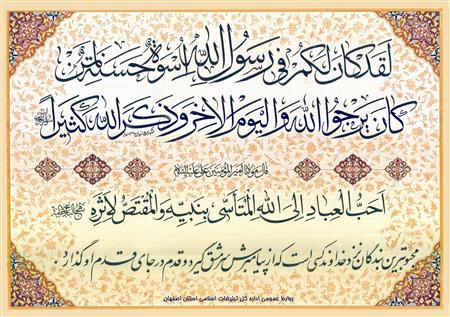 لَقَدْ كَانَ لَكُمْ فِي رَسُولِ اللَّهِ أُسْوَةٌ حَسَنَةٌ لِمَنْ
كَانَ يَرْجُوا اللَّهَ وَالْيَوْمَ الْآخِرَ وَذَكَرَ اللَّهَ كَثِيرًا
قال مولانا امیرالمؤمنین علی علیه‌السلام
اَحَبُّ الْعِبادِ اِلَی اللهِ الْمُتَأَسّی بِنَبِیِّهِ وَالْمُقْتَصُّ لِاَثَرِهِ
محبوبترین بندگان نزد خداوند کسی است که از پیامبرش سرمشق گیرد و قدم در جای قدم او گذارد.
روابط عمومی اداره کل تبلیغات اسلامی استان اصفهان